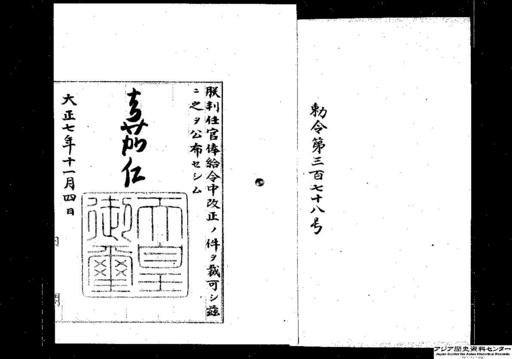 勅令第三百七十八号
朕判任官俸給令中改正ノ件ヲ裁可シ茲
ニ之ヲ公布セシム
嘉仁
天皇
御璽
大正七年十一月四日
アジア歴史資料センター
Japan Center for Asian Historical Records